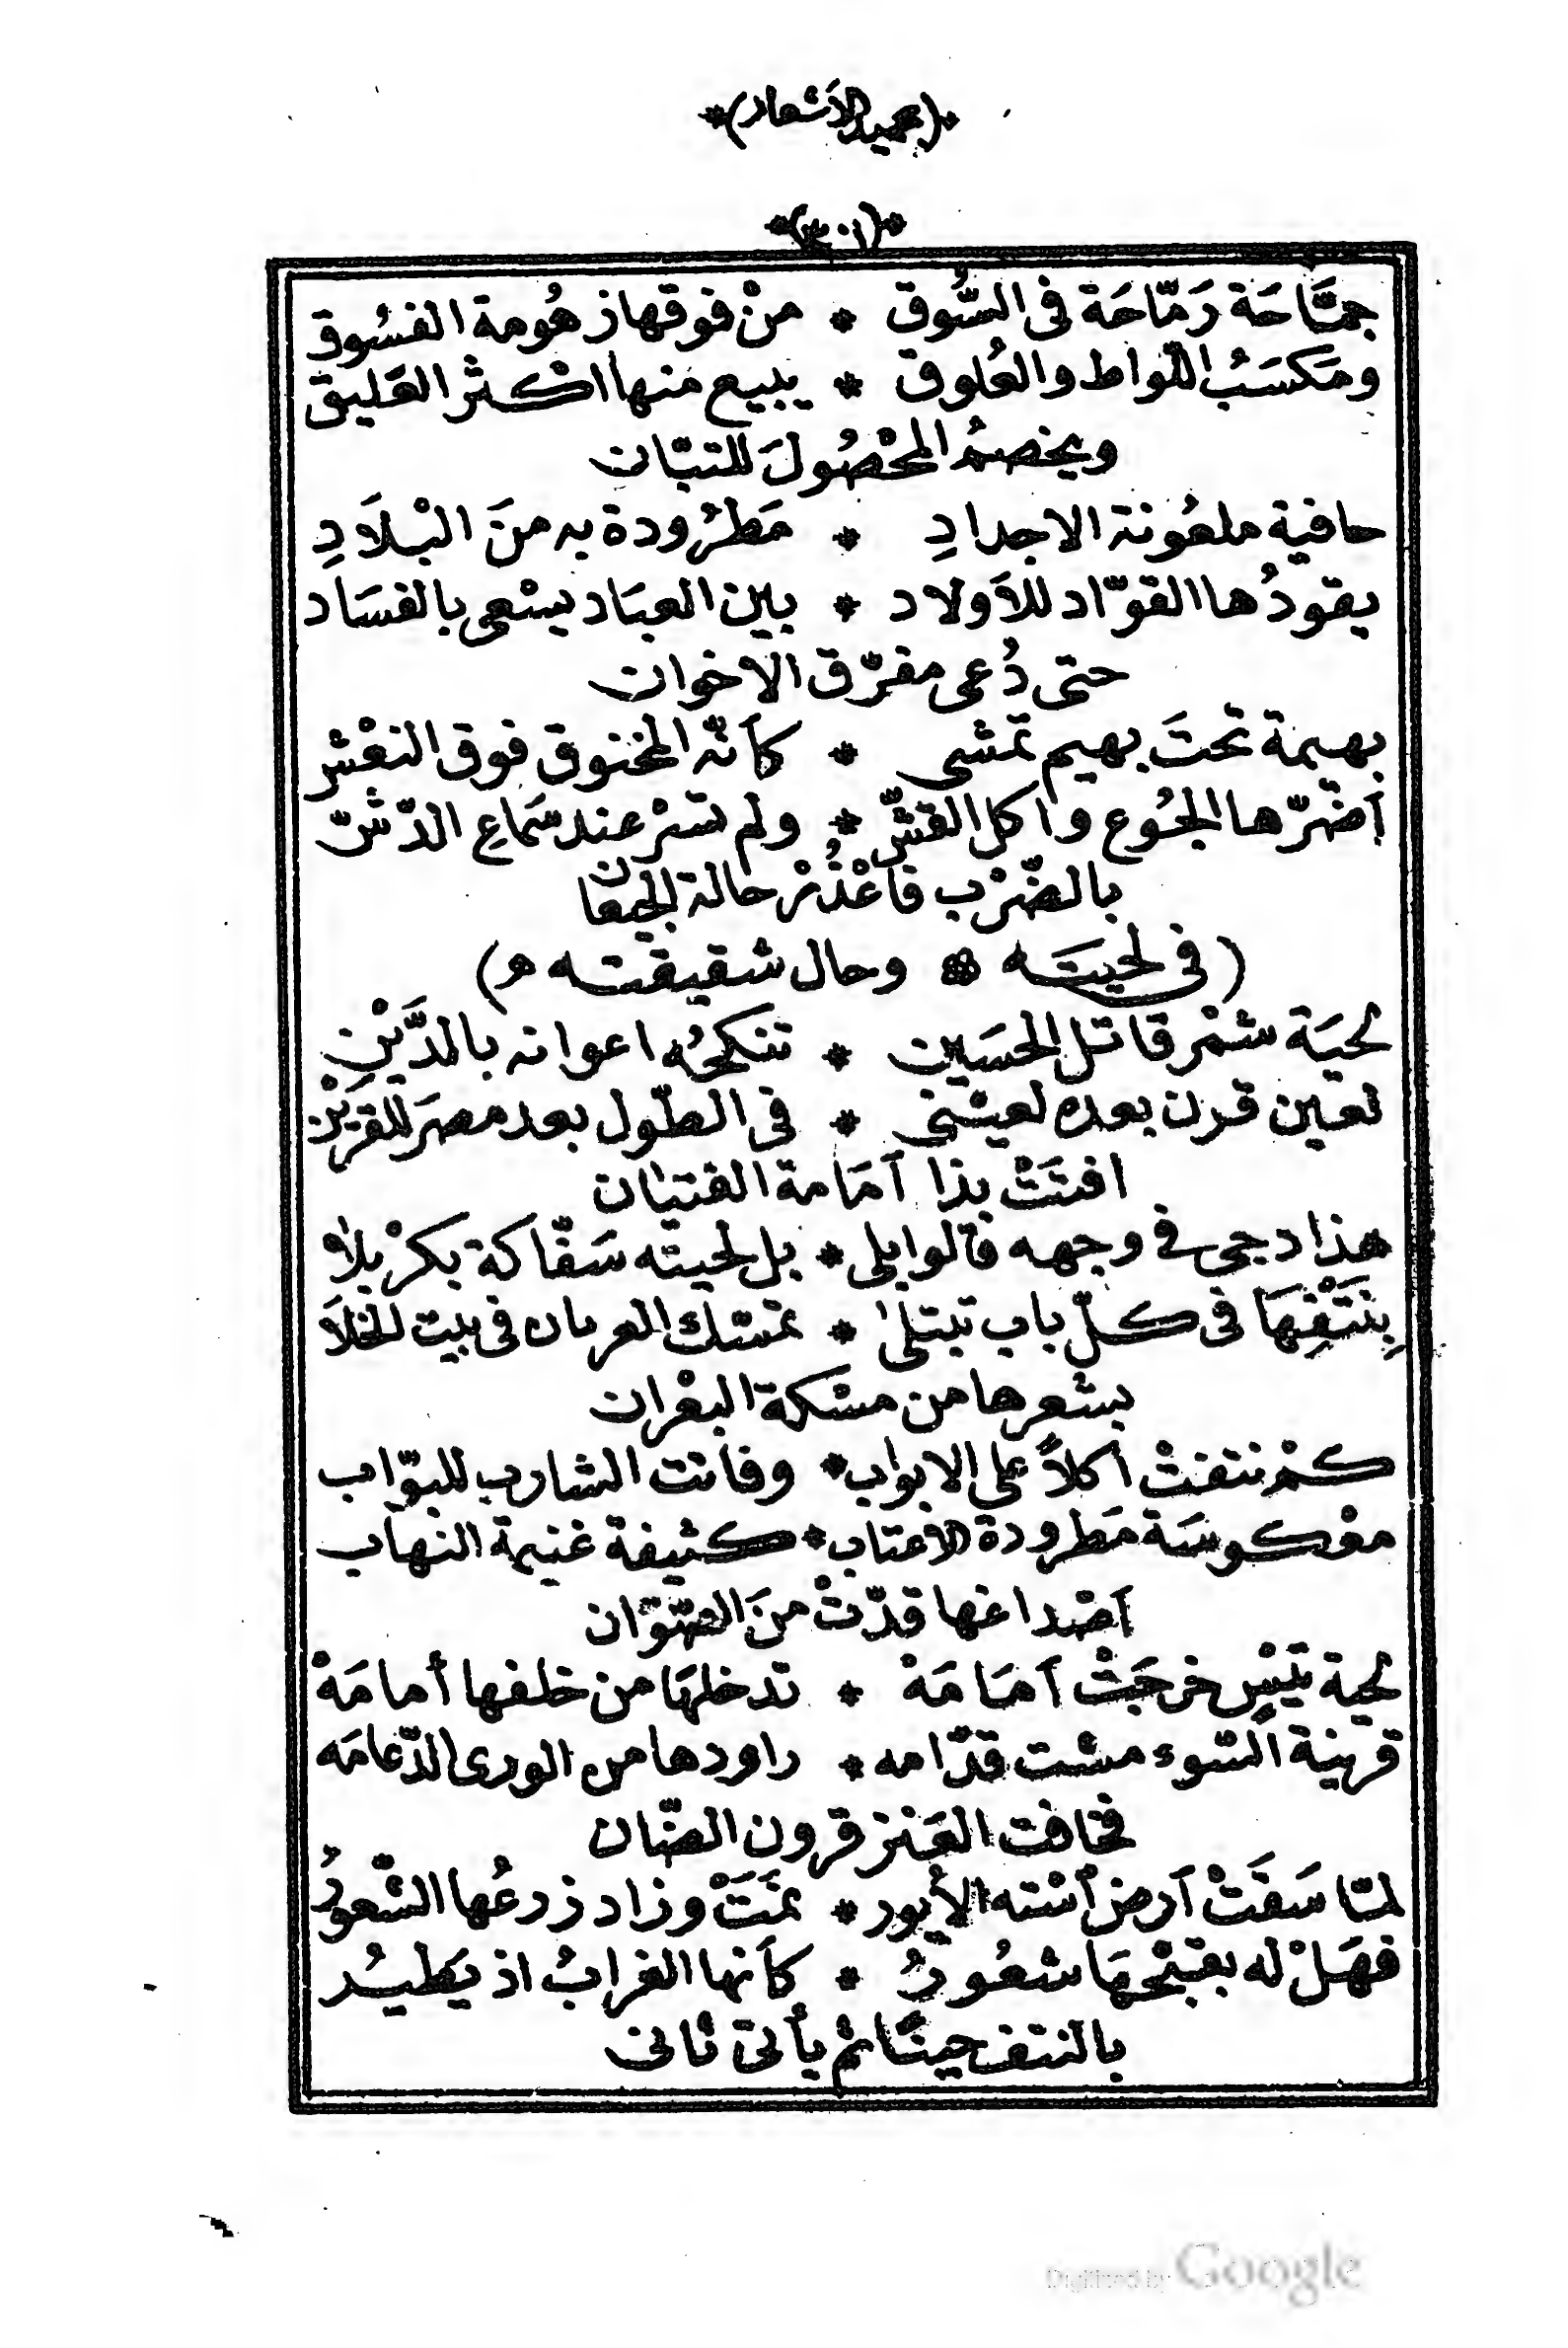 *(حميد الأشعار)*
*(٣٠١)*
جمَّاحَة رَمّاحَة فى السُّوق * منْ فوقها زهُومة الفسُوق
ومَكسَبُ اللّواط والعُلوق * يبيع منها اكْثر العَليق
ويخصمُ المحْصُولَ للتبّان
حافية ملعُونة الاجدادِ * مَطرُودة به منَ البْلَادِ
يقودُها القوّاد للأَولاد * بين العبَاد يسْعى بالفسَاد
حتى دُعى مفرّق الاخوان
بهيمة تحتَ بهيم تمشى * كأنّه المخنوق فوق النعْش
أضرّها الجُوع واكل القشّ * ولم تسرْ عند سَماعِ الدّشّ
بالضّرْب فاعْذُرْ حالة الجيعان
(فى لحيتَه * وحال شقيقته ه)
لحيَة شمْر قاتل الحسَين * تنكحُه اعوانه بالدَّيْنِ
لعين قرن بعده لعيـْنى * فى الطّول بعد مصرَ للقرَيْن
افتَتْ بذا أمَامة الفتيان
هذا دجى فى وجهه قالوا بلى * بل لحيته سَفّاكة بكرْبلا
بِنَتْفِهَا فى كلّ باب تبتلى * تمسّك العريان فى بيت الخلَا
بشعرها من مسْكة البعْران
كمْ نتفتْ أكلاً على الابواب * وفاتت الشارب للبوّاب
معْكوسَة مَطرودة الاعتاب * كثيفة غنيمة النهاب
أصْداغها قدّتْ منَ الصّوّان
لحية تيْسٍ خرجَتْ أمَامَهْ * تدخلهَا من خلفها أمامَهْ
قرينة السّوء مشت قدّامه * راودها من الورى الدّعامَه
فخافت العَنز قرون الضّان
لمّا سَقَتْ أرض أسْته الأيور * نمَتْ وزاد زرعُها الشّعورُ
فهَلْ له بقبْحهَا شعُورُ * كأنها الغرابُ اذ يَطيرُ
بالنتف حينًا ثم يأتى ثانى
Digitized by Google